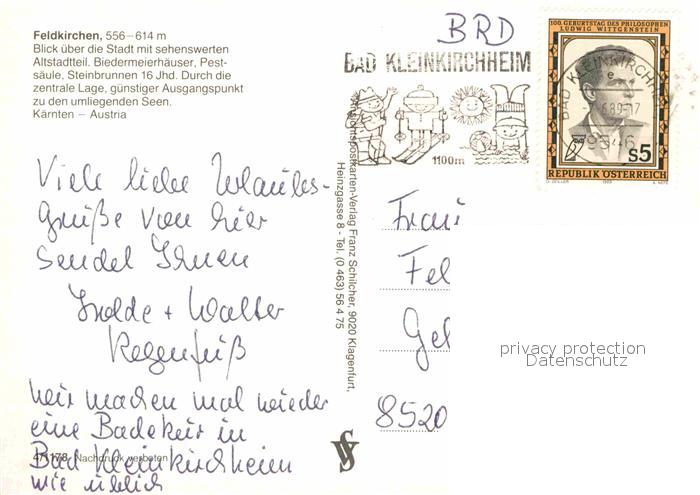 Feldkirchen, 556–614 m
Blick über die Stadt mit sehenswerten
Altstadtteil. Biedermeierhäuser, Pest-
säule, Steinbrunnen 16 Jhd. Durch die
zentrale Lage, günstiger Ausgangspunkt
zu den umliegenden Seen.
Kärnten – Austria
Viele liebe Urlaubs-
grüße von hier
sendet Ihnen
Isolde + Walter
wir machen mal wieder
eine Badekur in
Bad Kleinkirchheim
wie üblich
Nachdruck verboten
Ansichtspostkarten-Verlag Franz Schilcher, 9020 Klagenfurt,
Heinzgasse 8 - Tel. (0 463) 56 4 75
BRD
BAD KLEINKIRCHHEIM
1100m
100. GEBURTSTAG DES PHILOSOPHEN
LUDWIG WITTGENSTEIN
BAD KLEINKIRCHH
9546
S5
REPUBLIK ÖSTERREICH
1989
Frau
Fel
Gel
8520
privacy protection
Datenschutz